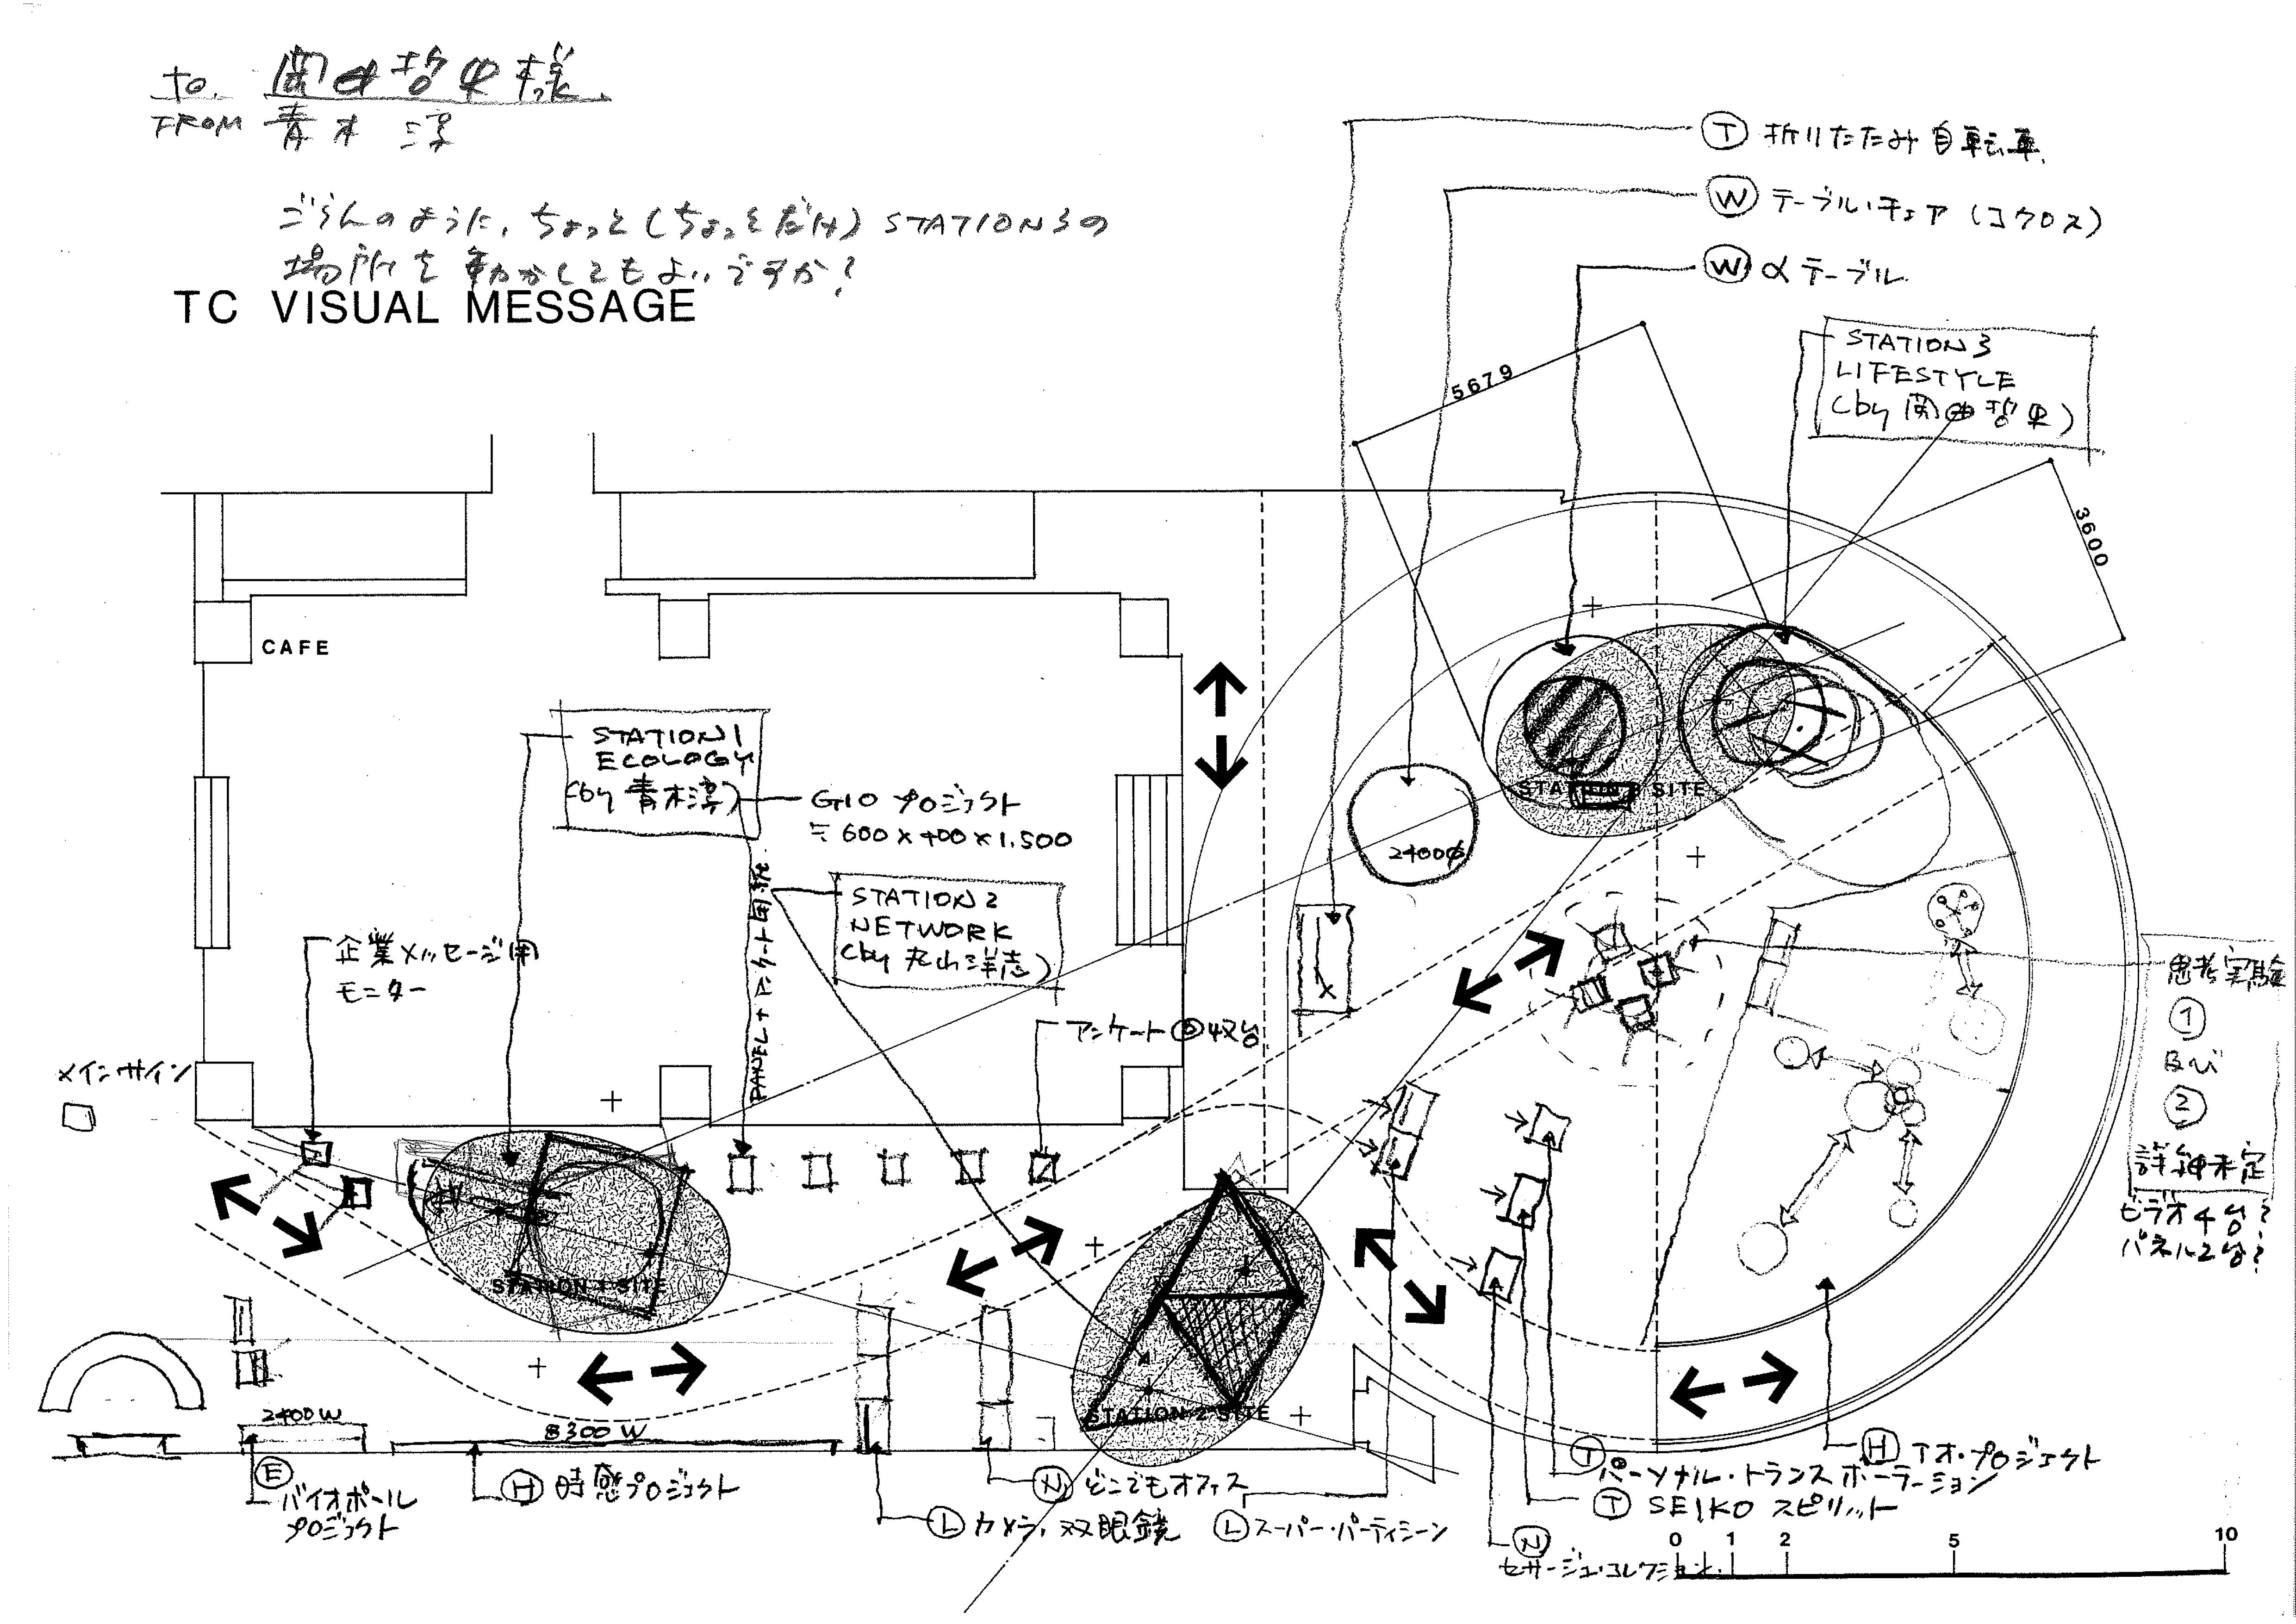 to. 関田哲史様
FROM 青木 淳
ごらんのように、ちょっと(ちょっとだけ) STATION3の
場所を動かしてもよいですか?
TC VISUAL MESSAGE
Ⓣ 折りたたみ自転車
Ⓦ テーブル・チェア (コクロス)
Ⓦ αテーブル
STATION3
LIFESTYLE
(by 関田哲史)
5679
3600
CAFE
STATION1
ECOLOGY
(by 青木淳)
GIO プロジェクト
≒ 600 x 400 x 1.500
PANEL + アンケート用紙
STATION2
NETWORK
(by 丸山洋志)
企業メッセージ用
モニター
アンケート
メインサイン
STATION 3 SITE
2400φ
思考実験
①
及び
②
詳細未定
ビデオ4台?
パネル2台?
STATION 1 SITE
STATION 2 SITE
2400W
8300W
Ⓔ
バイオボール
プロジェクト
Ⓗ 時感プロジェクト
Ⓝ どこでもオフィス
Ⓛ カメラ, 双眼鏡
Ⓛ スーパー・パーティシーン
Ⓗ Tオ・プロジェクト
Ⓣ
パーソナル・トランスポーテーション
Ⓣ SEIKO スピリット
Ⓝ
セサージュ・コレクション
0 1 2 5 10